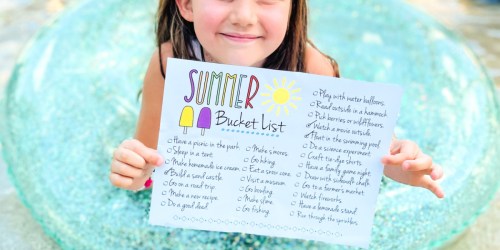 SUMMER
Bucket List
Have a picnic in the park
Sleep in a tent
Make homemade ice cream
Build a sand castle
Go on a road trip
Make a new recipe
Do a good deed
Make s'mores
Go hiking
Eat a snow cone
Visit a museum
Go bowling
Make slime
Go fishing
Play with water balloons
Read outside in a hammock
Pick berries or wildflowers
Watch a movie outside
Float in the swimming pool
Do a science experiment
Craft tie-dye shirts
Have a family game night
Draw with sidewalk chalk
Go to a farmer's market
Watch fireworks
Have a lemonade stand
Run through the sprinklers